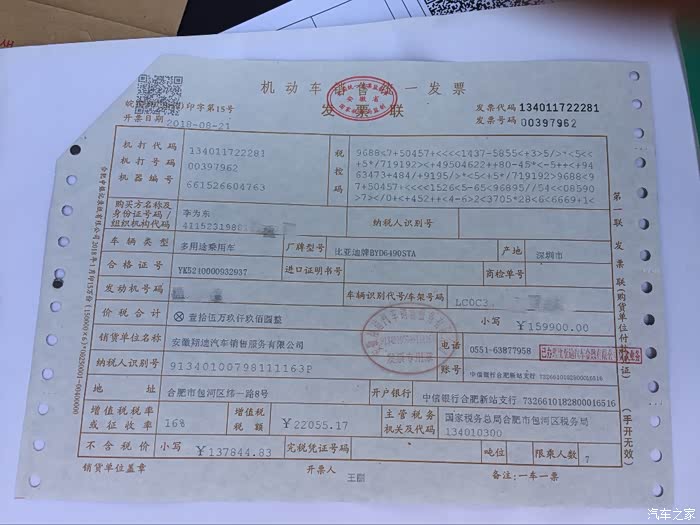 机动车销售统一发票
发票联
印字第15号
发票代码 134011722281
开票日期 2018-08-21
发票号码 00397962
机打代码 134011722281
机打号码 00397962
机器编号 661526604763
税控码
9688<7+50457+<<<<1437-5855<+3>5/>*<5<<
+5*/719192><+49504622++80-45*<-5++<+94
63473+484/+9195/>*<5<+5*/719192>9688<9
97+50457+<<<<1526<5-65<96895//54<<0859
购买方名称及身份证号码/组织机构代码 李为东
纳税人识别号
车辆类型 多用途乘用车 厂牌型号 比亚迪牌BYD6490STA 产地 深圳市
合格证号 YK5210000932937 进口证明书号 商检单号
发动机号码 车辆识别代号/车架号码 LC0C3
价税合计 ⊗壹拾伍万玖仟玖佰圆整 小写 ￥159900.00
销货单位名称 安徽翔迪汽车销售服务有限公司 电话 0551-63877958
纳税人识别号 91340100798111163P 账号 中信银行合肥新站支行 7326610182800016516
地址 合肥市包河区纬一路8号 开户银行 中信银行合肥新站支行 7326610182800016516
增值税税率或征收率 16% 增值税税额 ￥22055.17 主管税务机关及代码 国家税务总局合肥市包河区税务局 134010300
不含税价 小写 ￥137844.83 完税凭证号码 吨位 限乘人数 7
销货单位盖章 开票人 王 备注:一车一票
第一联 发票联(购货单位付款凭证)
(手开无效)
发票专用章
汽车之家